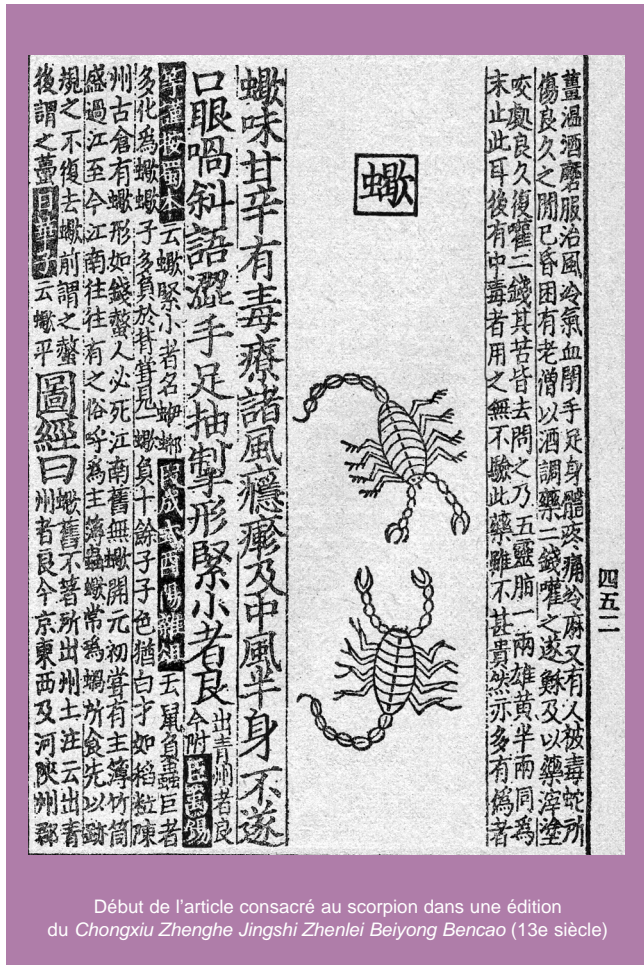 四五二
薑溫酒磨服治風冷氣血閉手足身體疼痛冷麻又有人被毒蛇所
傷良久之間已昏困有老僧以酒調藥二錢灌之遂穌及以藥滓塗
咬處良久復灌二錢其苦皆去問之乃五靈脂一兩雄黃半兩同為
末止此耳後有中毒者用之無不驗此藥雖不甚貴然亦多有偽者
蠍
蠍味甘辛有毒療諸風癮疹及中風半身不遂
口眼喎斜語澀手足抽掣形緊小者良 出青州者良今附 臣禹錫
等謹按蜀本云蠍緊小者名 段成式酉陽雜俎云鼠負蟲巨者
多化為蠍蠍子多負於背嘗見一蠍負十餘子子色猶白才如稻粒陳
州古倉有蠍形如錢螫人必死江南舊無蠍開元初嘗有主簿竹筒
盛過江至今江南往往有之俗呼為主簿蟲蠍常為蝸所食先以跡
規之不復去蠍前謂之螫
後謂之蠆日華子云蠍平
圖經曰
蠍舊不著所出州土注云出青
州者良今京東西及河陝州郡
Début de l'article consacré au scorpion dans une édition
du Chongxiu Zhenghe Jingshi Zhenlei Beiyong Bencao (13e siècle)